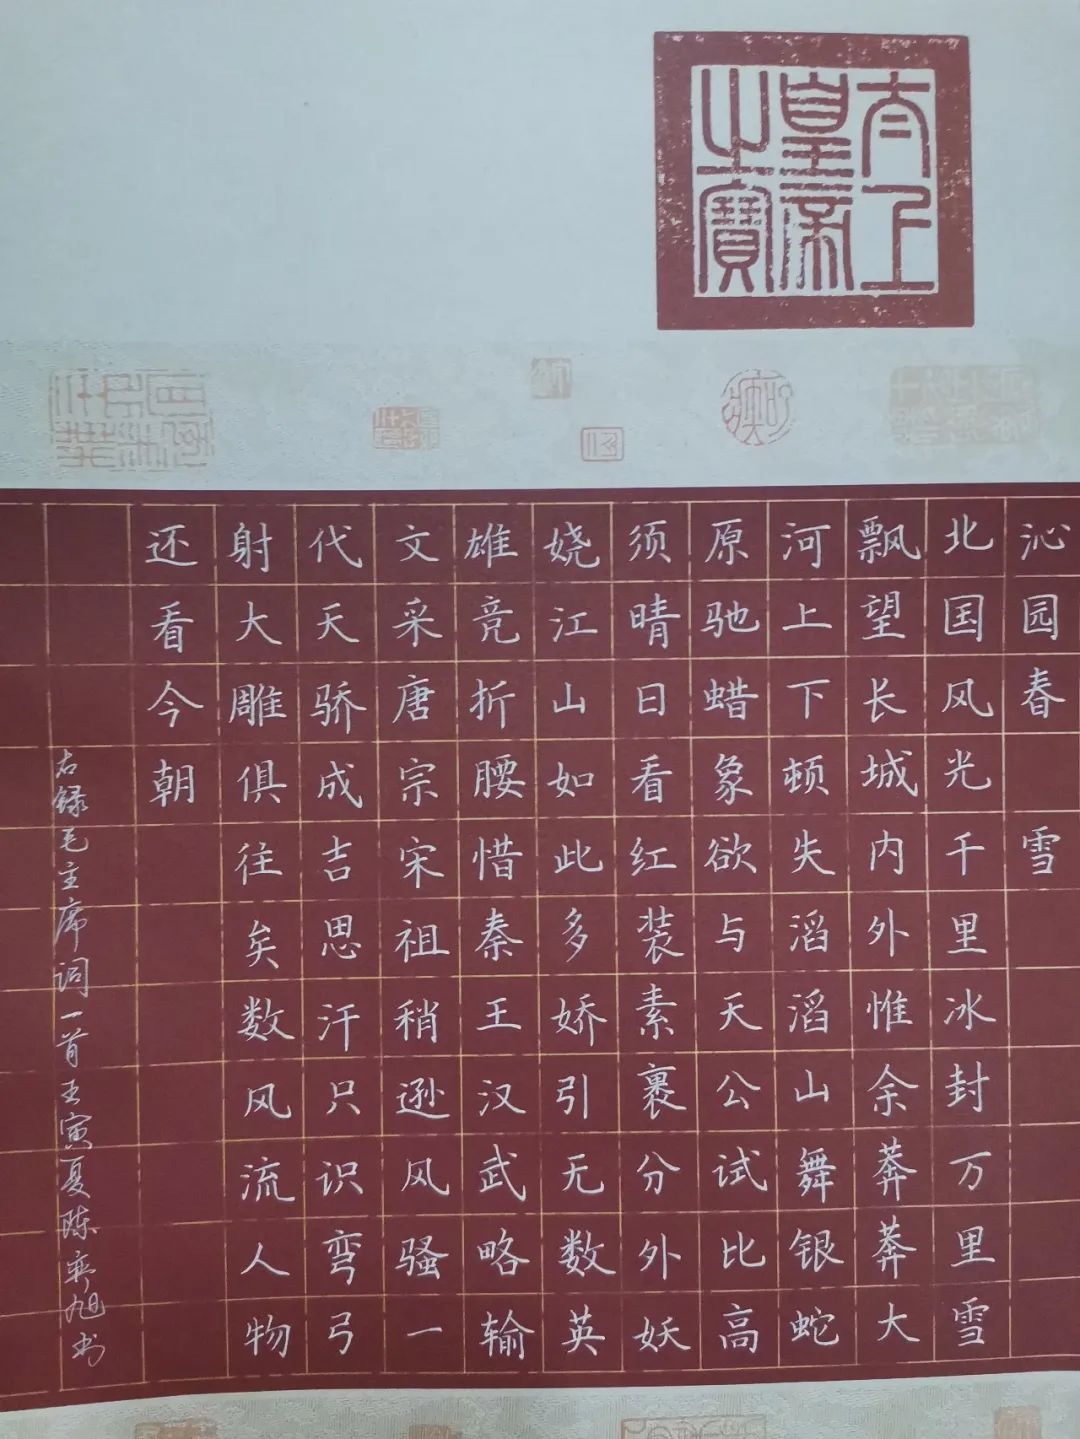 太上皇帝之寶
沁园春 雪
北国风光千里冰封万里雪
飘望长城内外惟余莽莽大
河上下顿失滔滔山舞银蛇
原驰蜡象欲与天公试比高
须晴日看红装素裹分外妖
娆江山如此多娇引无数英
雄竞折腰惜秦王汉武略输
文采唐宗宋祖稍逊风骚一
代天骄成吉思汗只识弯弓
射大雕俱往矣数风流人物
还看今朝
右録毛主席词一首壬寅夏陈奕旭书